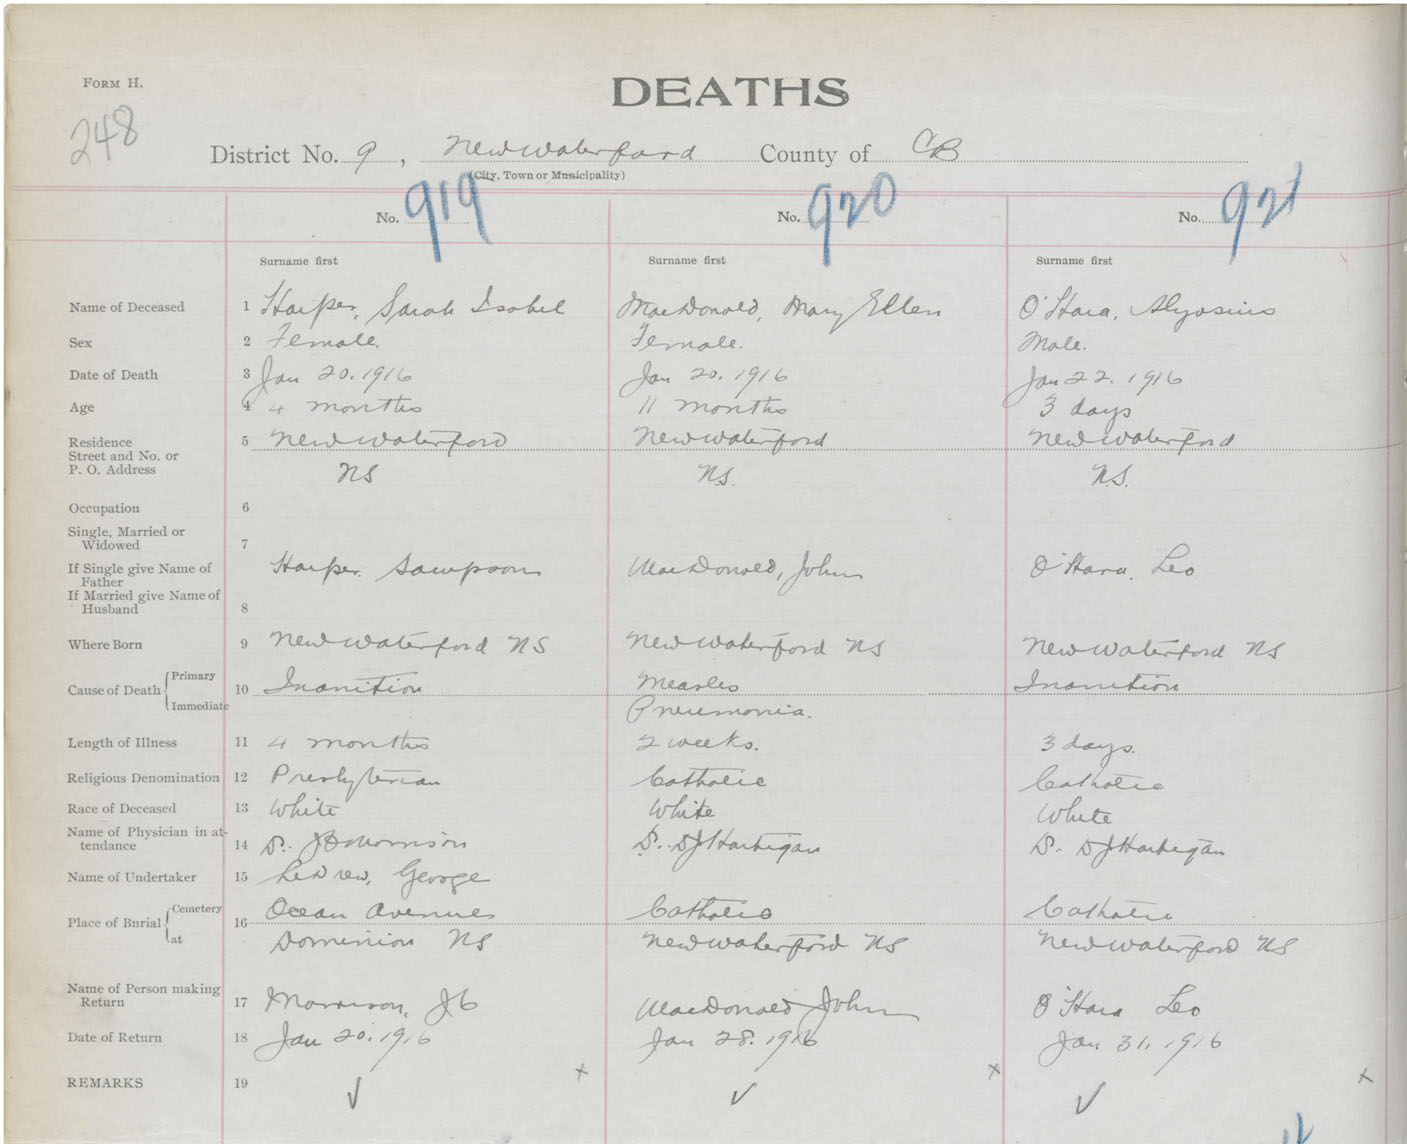 FORM H.
DEATHS
248
District No. 9, New Waterford County of CB
(City, Town or Municipality)
No. 919 No. 920 No. 921
Surname first Surname first Surname first
Name of Deceased 1 Harper, Sarah Isobel MacDonald, Mary Ellen O'Hara, Alyosius
Sex 2 Female. Female. Male.
Date of Death 3 Jan 20. 1916 Jan 20. 1916 Jan 22. 1916
Age 4 4 months 11 months 3 days
Residence 5 New Waterford New Waterford New Waterford
Street and No. or
P. O. Address NS NS. N.S.
Occupation 6
Single, Married or
Widowed 7
If Single give Name of Harper. Sampson MacDonald, John O'Hara. Leo
Father
If Married give Name of
Husband 8
Where Born 9 New Waterford NS New Waterford NS New Waterford NS
Cause of Death Primary 10 Inanition Measles Inanition
Immediate Pneumonia.
Length of Illness 11 4 months 2 weeks. 3 days.
Religious Denomination 12 Presbyterian Catholic Catholic
Race of Deceased 13 White White White
Name of Physician in at-
tendance 14 D. Morrison D. DJ Hartigan D. DJ Hartigan
Name of Undertaker 15 LeDrew, George
Place of Burial Cemetery 16 Ocean Avenue Catholic Catholic
at Dominion NS New Waterford NS New Waterford NS
Name of Person making
Return 17 Morrison, MacDonald John O'Hara Leo
Date of Return 18 Jan 20. 1916 Jan 28. 1916 Jan 31, 1916
REMARKS 19 ✓ x ✓ x ✓ x